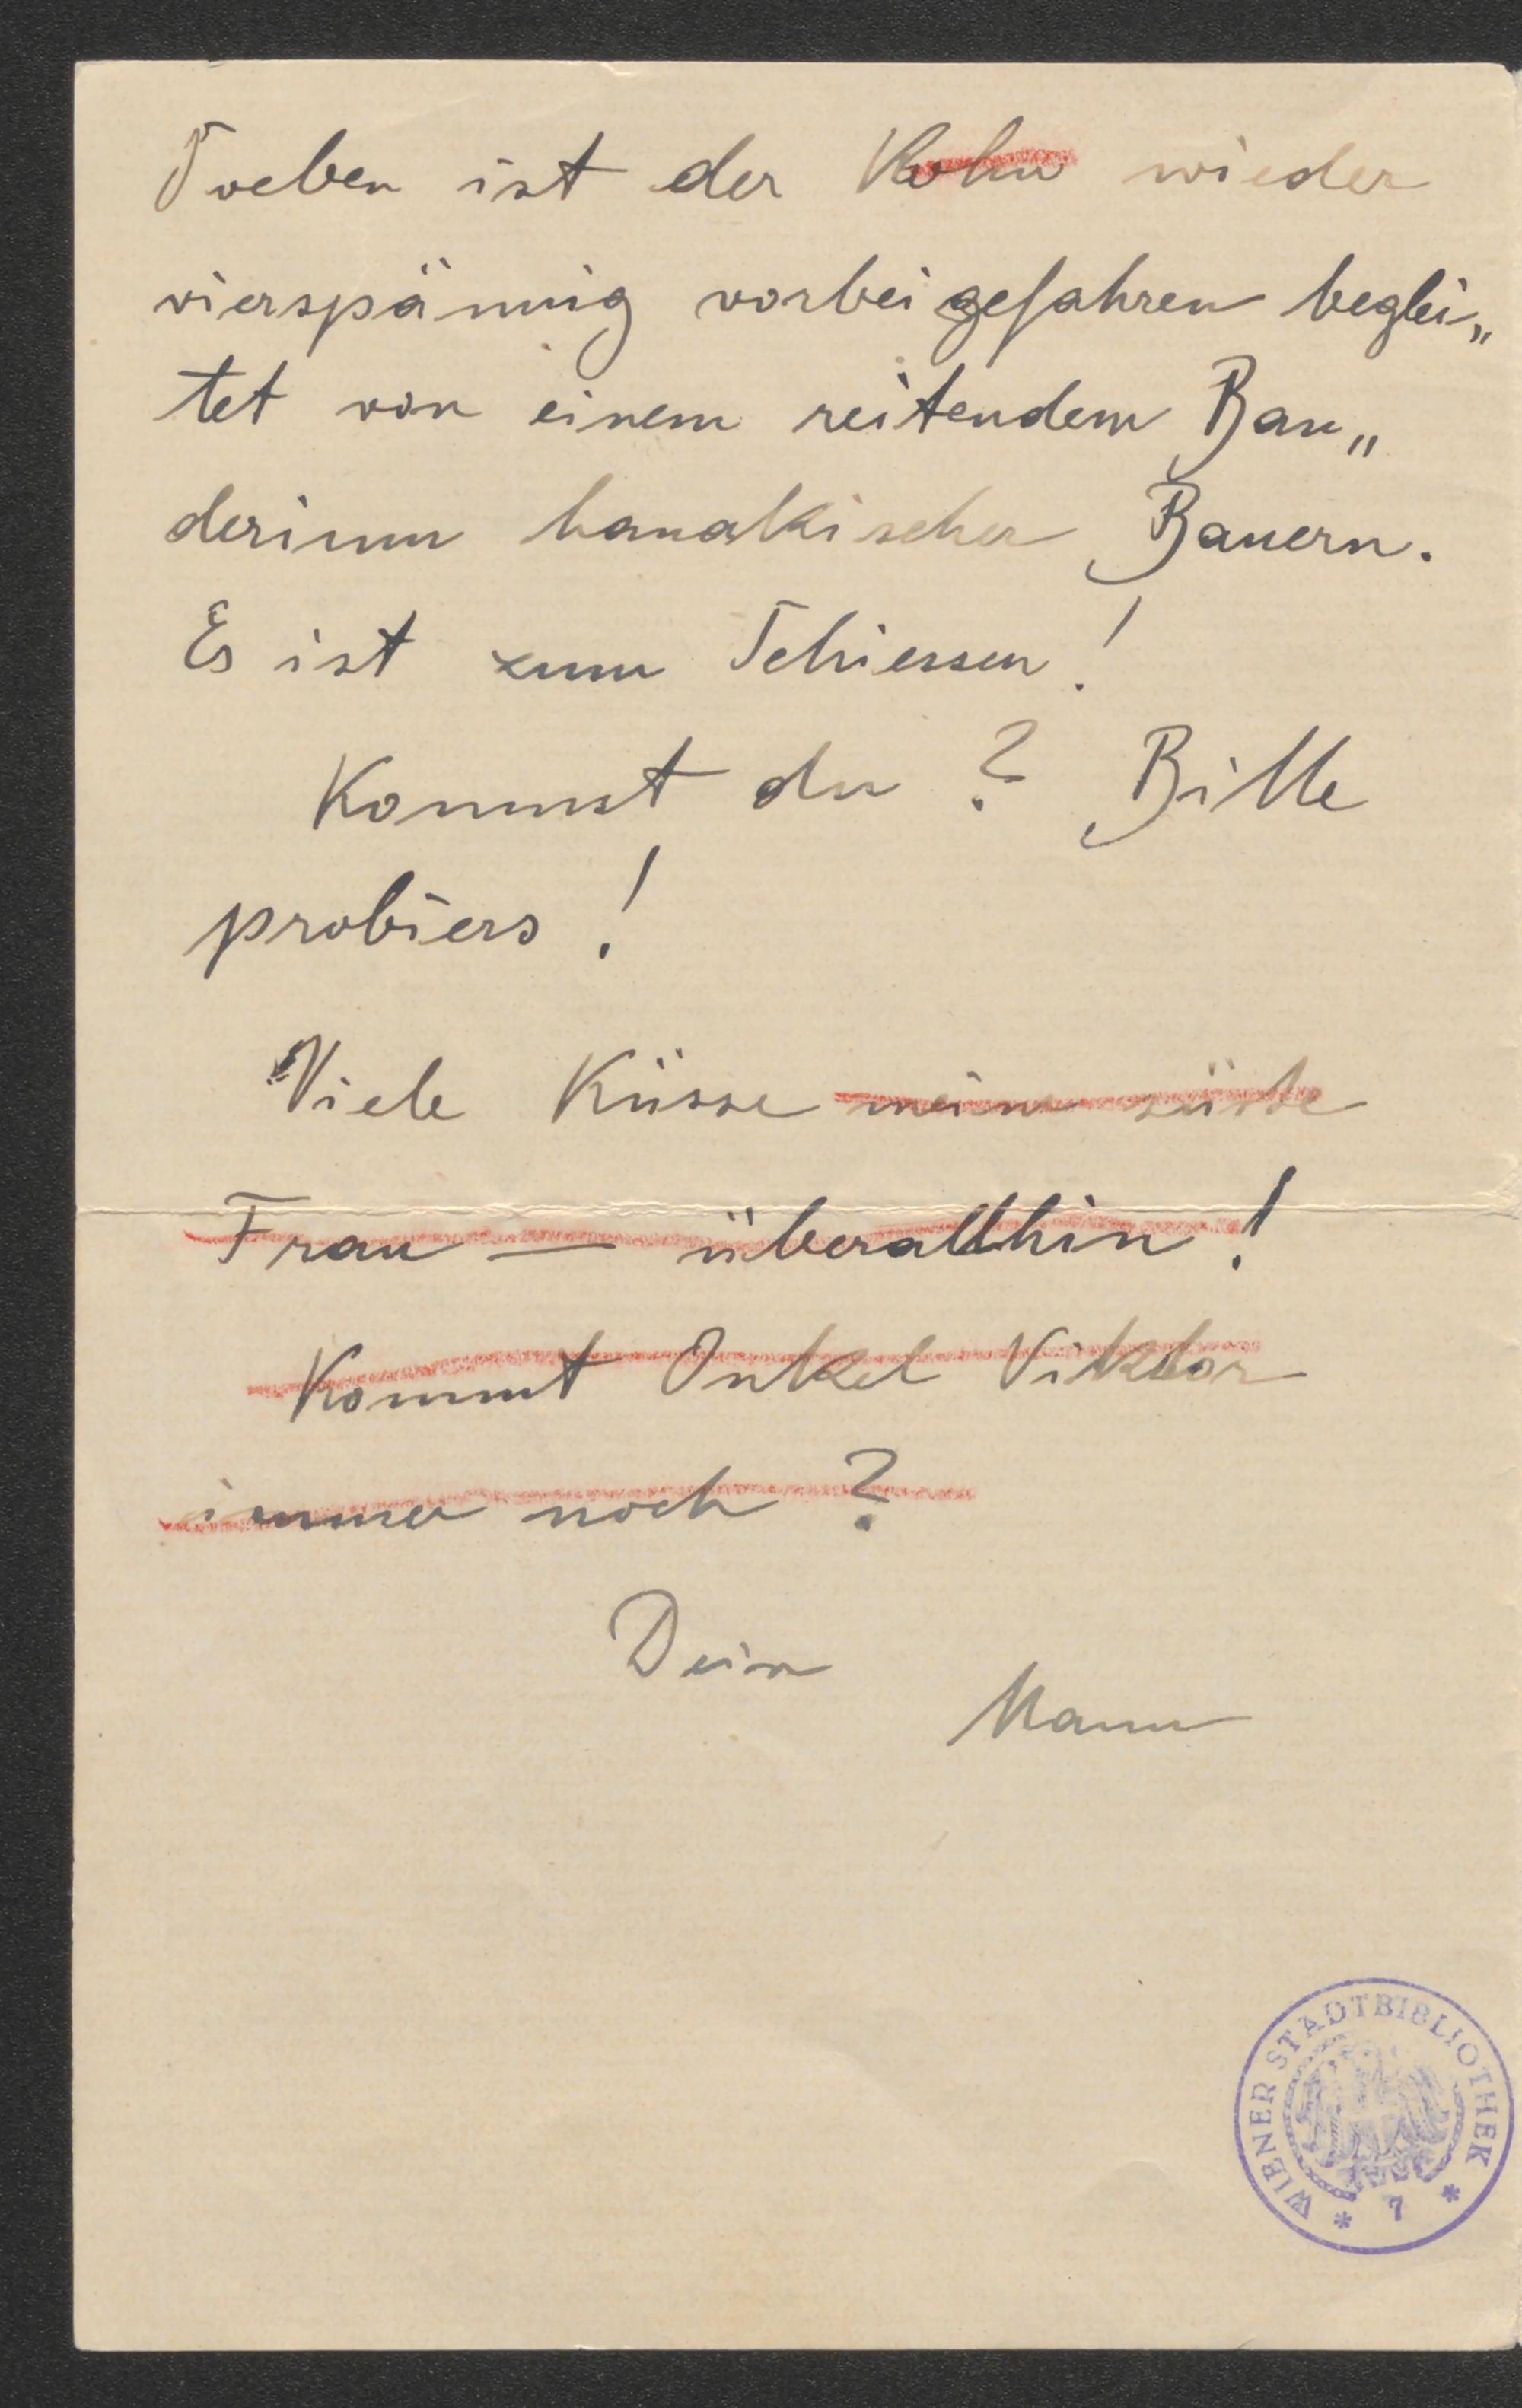 Soeben ist der Kohn wieder
vierspännig vorbeigefahren beglei„
tet von einem reitendem Ban„
derium hanakischer Bauern.
Es ist zum Schiessen!
Kommst du? Bitte
probiers!
Viele Küsse meine süsse
Frau — überallhin!
Kommt Onkel Viktor
immer noch?
Dein
Mann
WIENER STADTBIBLIOTHEK
* 7 *